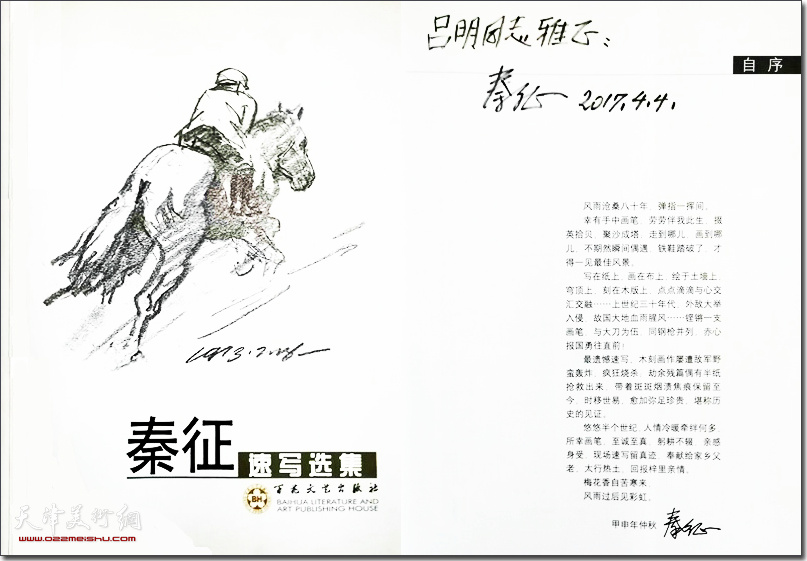 1973.2.26
秦征
速写选集
百花文艺出版社
BAIHUA LITERATURE AND
ART PUBLISHING HOUSE
天津美術網
www.022meishu.com
吕明同志雅正：
秦征 2017.4.4.
自 序
风雨沧桑八十年，弹指一挥间。
幸有手中画笔，劳劳伴我此生，掇
英拾贝，聚沙成塔，走到哪儿，画到哪
儿，不期然瞬间偶遇，铁鞋踏破了，才
得一见最佳风景。
写在纸上，画在布上，绘于土墙上、
穹顶上，刻在木版上，点点滴滴与心交
汇交融……上世纪三十年代，外敌大举
入侵，故国大地血雨腥风……铿锵一支
画笔，与大刀为伍，同钢枪并列，赤心
报国勇往直前！
最遗憾速写、木刻画作屡遭敌军野
蛮轰炸，疯狂烧杀，劫余残篇偶有半纸
抢救出来，带着斑斑烟渍焦痕保留至
今，时移世易，愈加弥足珍贵，堪称历
史的见证。
悠悠半个世纪，人情冷暖牵绊何多，
所幸画笔，至诚至真，躬耕不辍，亲感
身受，现场速写留真迹，奉献给家乡父
老，太行热土，回报梓里亲情。
梅花香自苦寒来，
风雨过后见彩虹。
甲申年仲秋 秦征